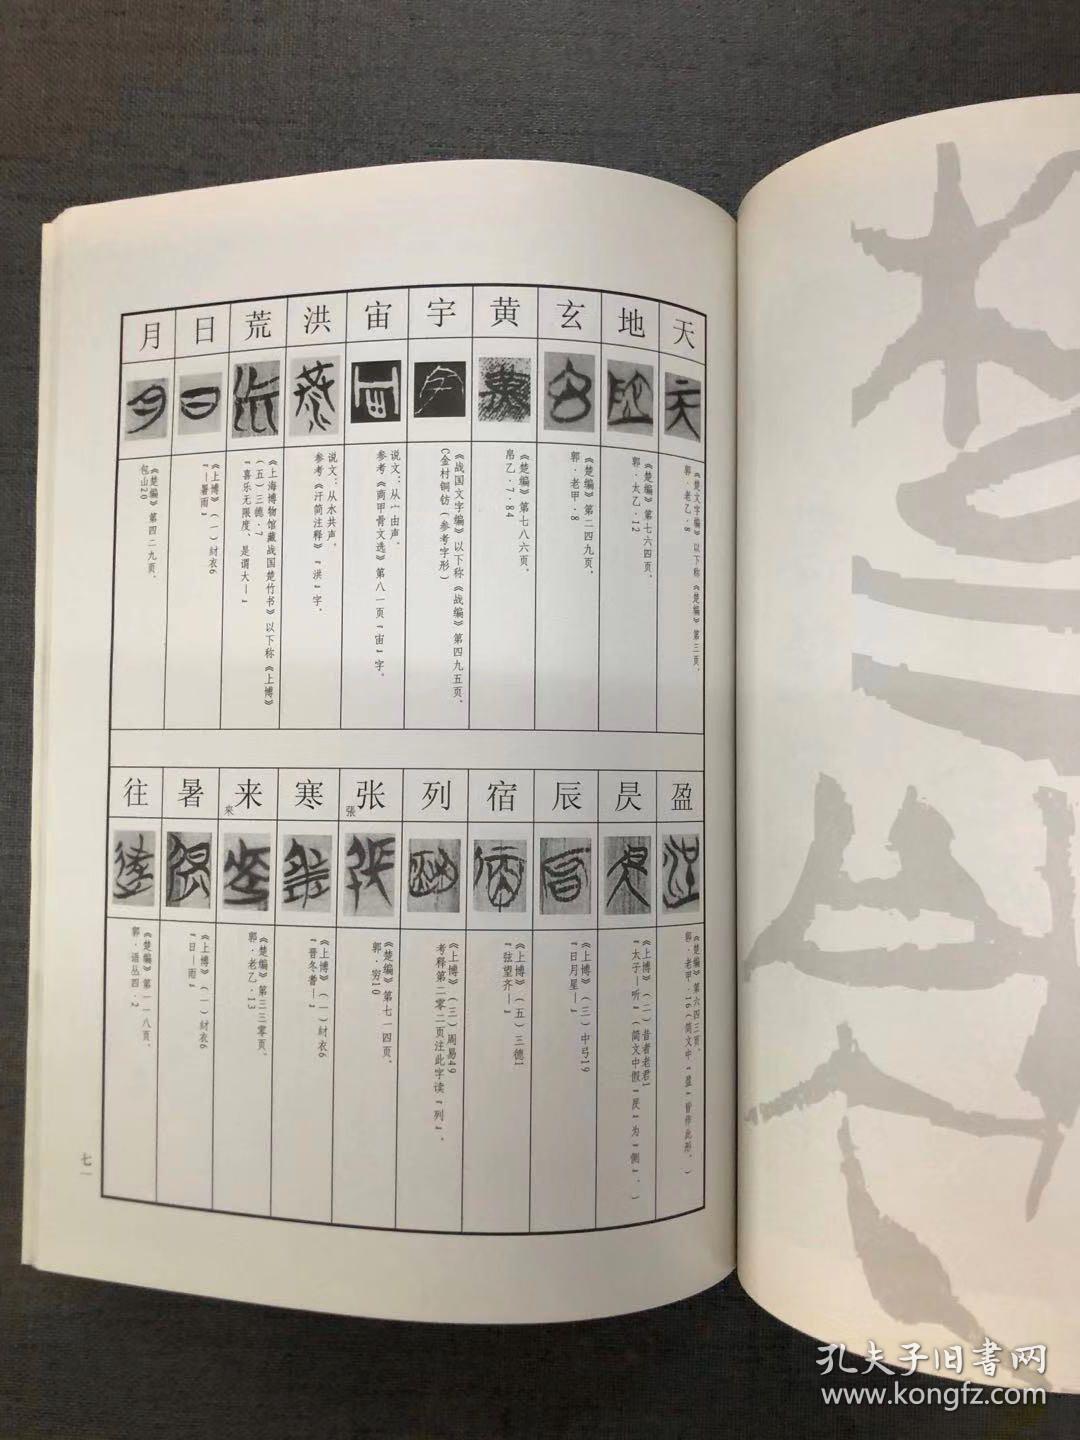 天
《楚文字编》以下称《楚编》第三页。
郭·老乙·8
地
《楚编》第七六四页。
郭·太乙·12
玄
《楚编》第二四九页。
郭·老甲·8
黄
《楚编》第七八六页。
帛乙·7·84
宇
《战国文字编》以下称《战编》第四九五页。
(金村铜钫(参考字形)
宙
说文：从宀由声。
参考《商甲骨文选》第八一页“宙”字。
洪
说文：从水共声。
参考《汗简注释》“洪”字。
荒
《上海博物馆藏战国楚竹书》以下称《上博》
(五)三德·7
“喜乐无限度、是谓大—”
日
《上博》(一)紂衣6
“—暑雨”
月
《楚编》第四二九页。
包山20
盈
《楚编》第六四三页。
郭·老甲·16(简文中“盈”皆作此形。)
昃
《上博》(二)昔者老君1
“太子—听”(简文中假“昃”为“侧”。)
辰
《上博》(三)中弓19
“日月星—”
宿
《上博》(五)三德1
“弦望齐—”
列
《上博》(三)周易49
考释第二零二页注此字读“列”。
张
張
《楚编》第七一四页。
郭·穷10
寒
《上博》(一)紂衣6
“晋冬耆—”
来
來
《楚编》第三三零页。
郭·老乙·13
暑
《上博》(一)紂衣6
“日—雨”
往
《楚编》第一一八页。
郭·语丛四·2
七一
孔夫子旧书网
www.kongfz.com